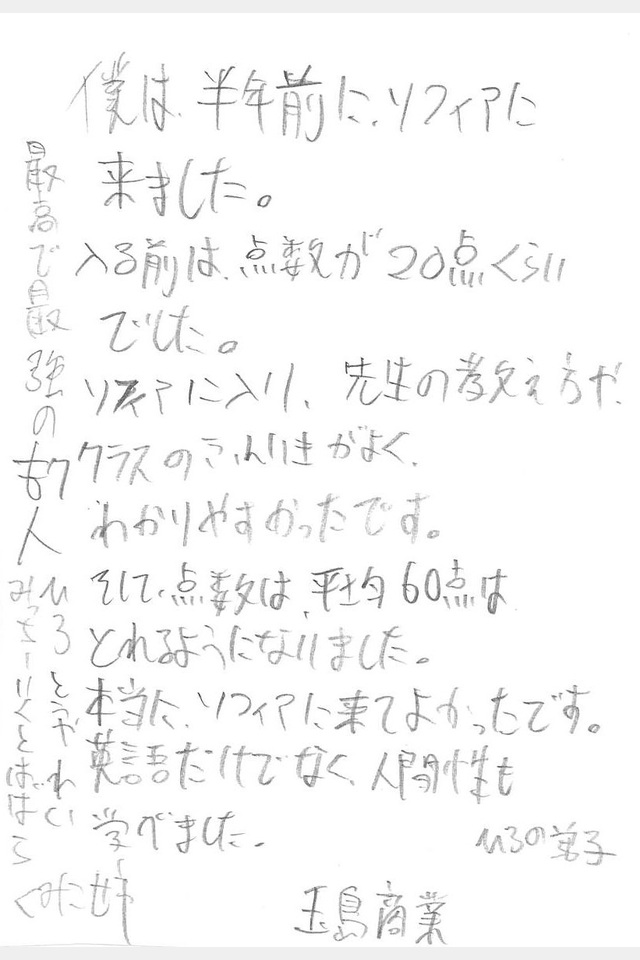 僕は、半年前に、ソフィアに
来ました。
入る前は、点数が20点くらい
でした。
ソフィアに入り、先生の教え方や、
クラスのふんいきがよく、
わかりやすかったです。
そして、点数は、平均60点は
とれるようになりました。
本当に、ソフィアに来てよかったです。
英語だけでなく、人間性も
学べました。
ひろの弟子
玉島商業
最高で最強の
人
ひろ
みっちー